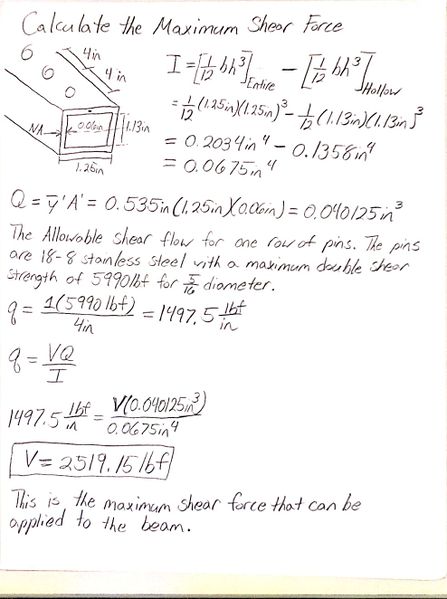 Calculate the Maximum Shear Force
4in
4in
I = [1/12 bh³]Entire - [1/12 bh³]Hollow
0.06in
1.13in
NA
1.25in
= 1/12 (1.25in)(1.25in)³ - 1/12 (1.13in)(1.13in)³
= 0.2034in⁴ - 0.1358in⁴
= 0.0675in⁴
Q = y̅'A' = 0.535in(1.25in)(0.06in) = 0.040125in³
The Allowable shear flow for one row of pins. The pins
are 18-8 stainless steel with a maximum double shear
strength of 5990lbf for 5/16 diameter.
q = 1(5990lbf)/4in = 1497.5 lbf/in
q = VQ/I
1497.5 lbf/in = V(0.040125in³)/0.0675in⁴
V = 2519.15 lbf
This is the maximum shear force that can be
applied to the beam.